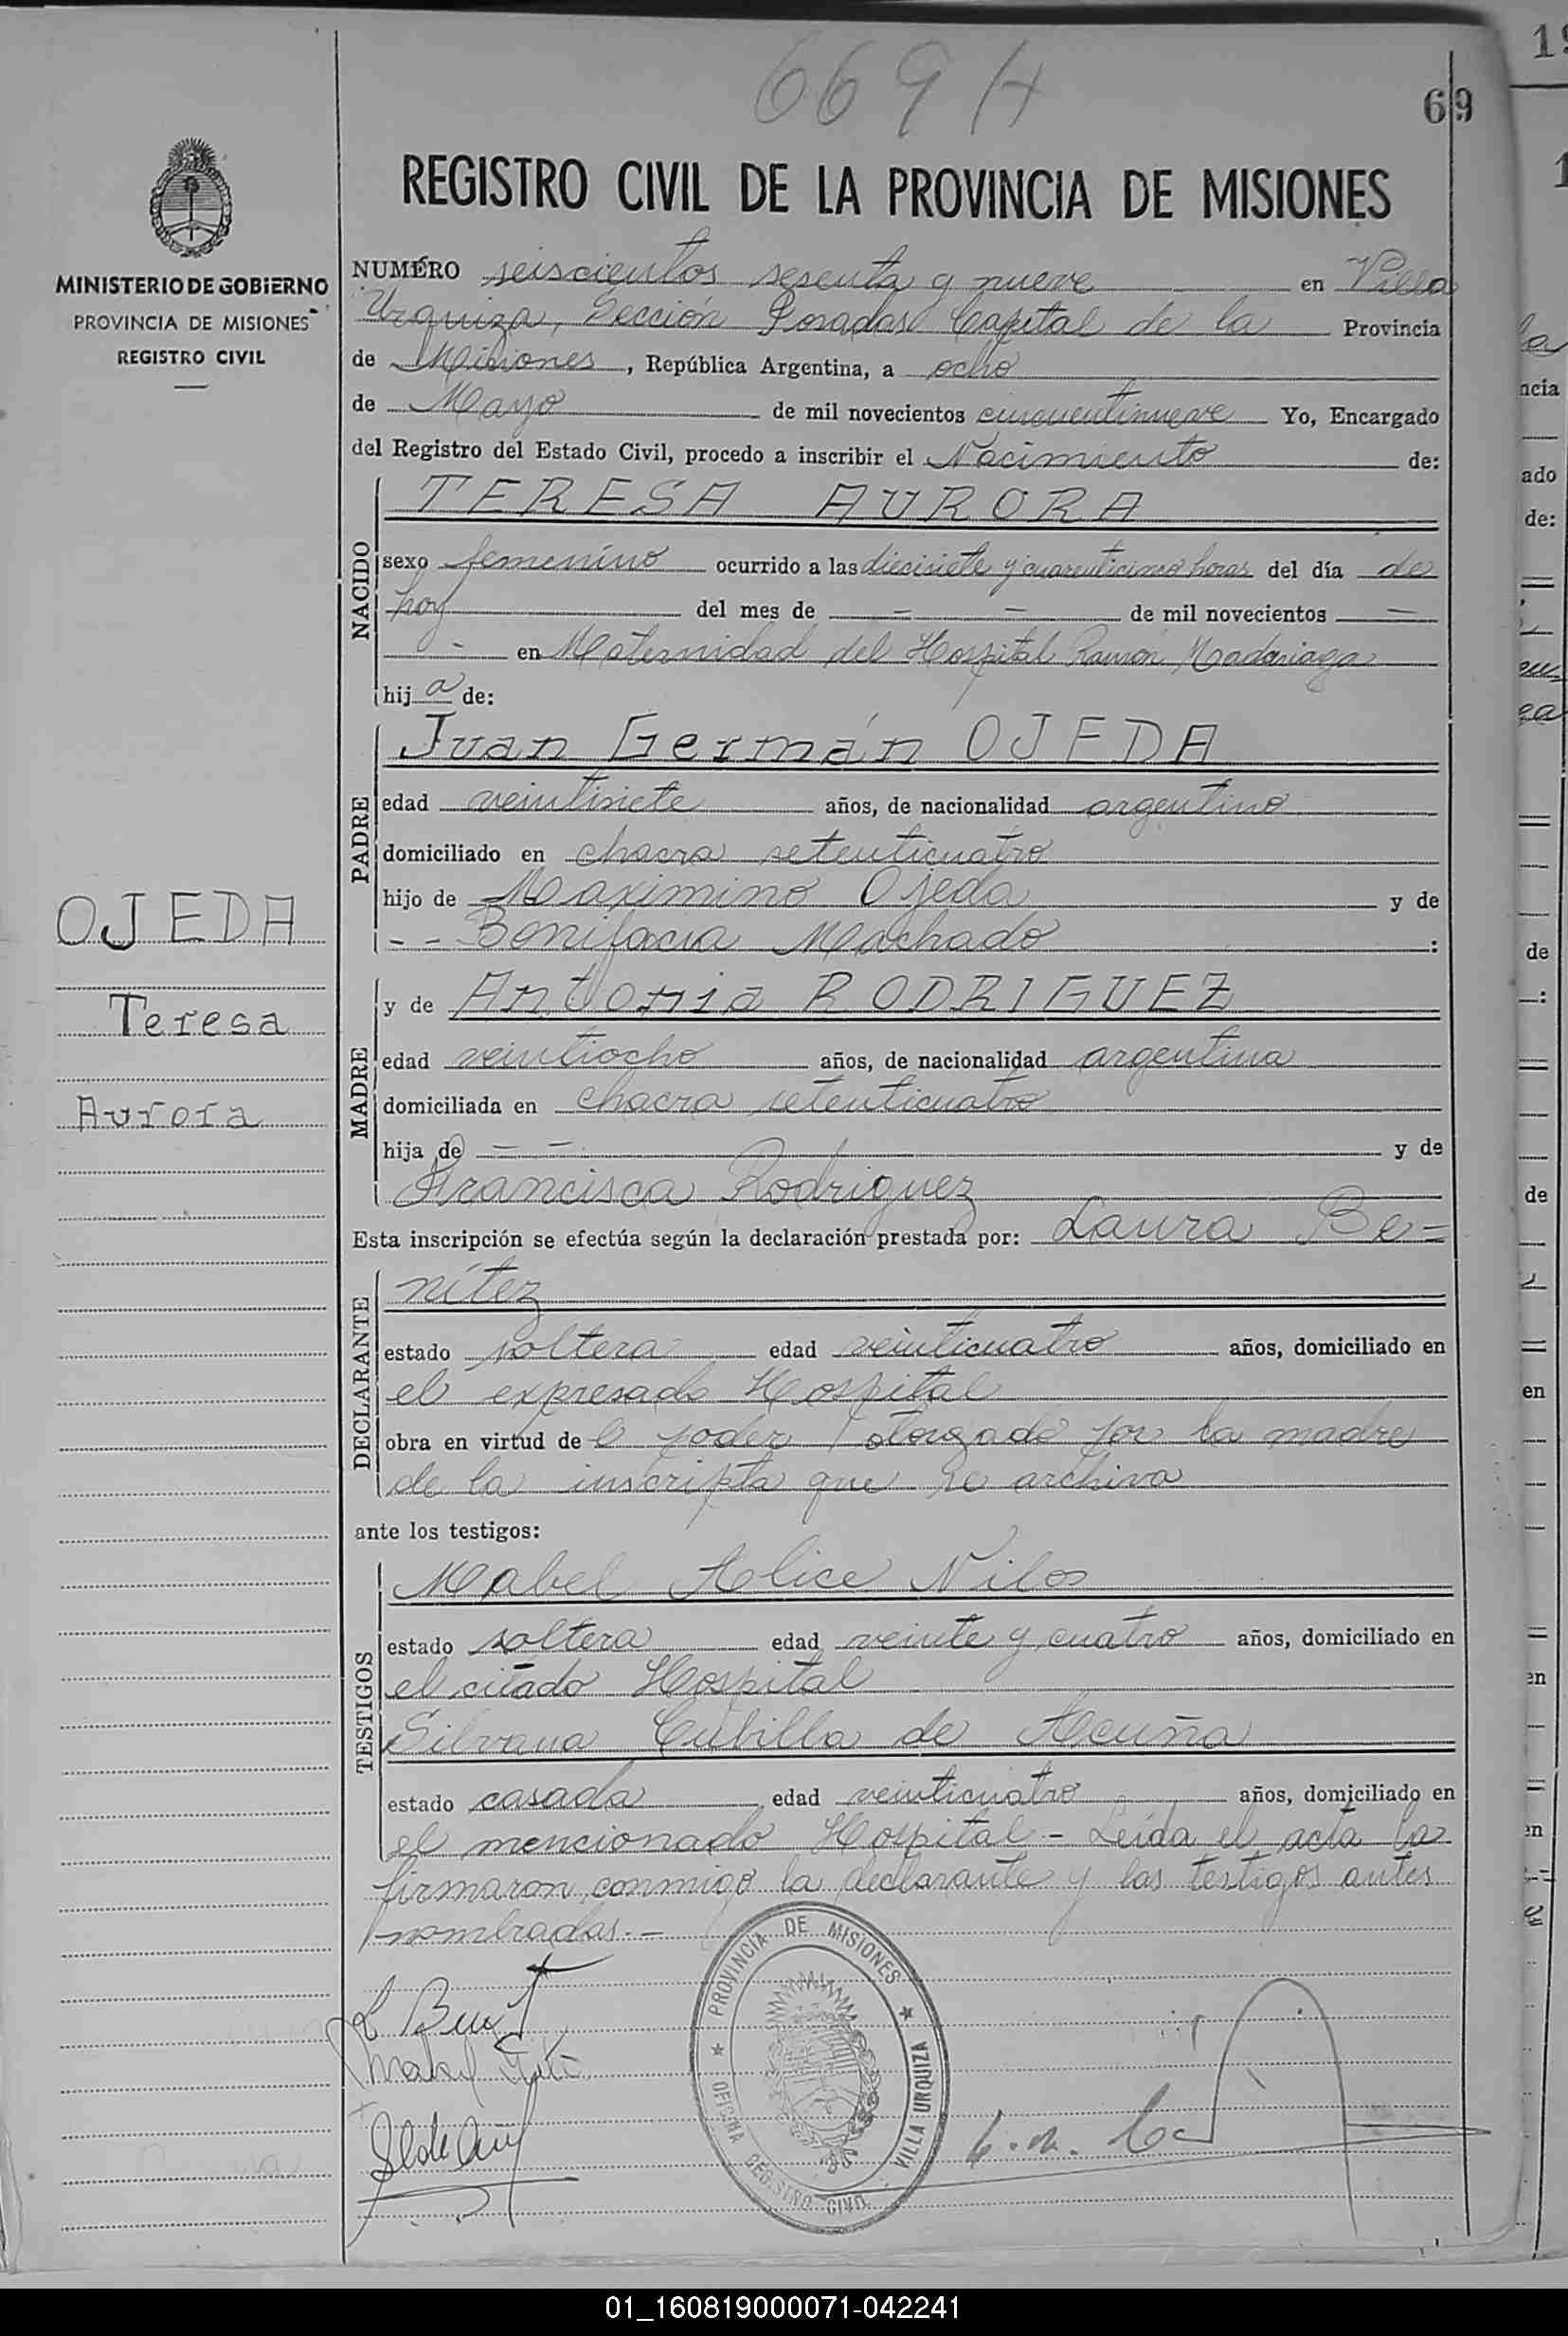 669 H
69
REGISTRO CIVIL DE LA PROVINCIA DE MISIONES
MINISTERIO DE GOBIERNO
PROVINCIA DE MISIONES
REGISTRO CIVIL
OJEDA
Teresa
Aurora
NUMÉRO seiscientos sesenta y nueve en Villa
Urquiza, Sección Posadas Capital de la Provincia
de Misiones, República Argentina, a ocho
de Mayo de mil novecientos cincuentinueve Yo, Encargado
del Registro del Estado Civil, procedo a inscribir el Nacimiento de:
NACIDO
TERESA AURORA
sexo femenino ocurrido a las diecisiete y cuarenticinco horas del día de
hoy del mes de — — de mil novecientos —
- en Maternidad del Hospital Ramón Madariaga
hija de:
PADRE
Juan Germán OJEDA
edad veintisiete años, de nacionalidad argentino
domiciliado en chacra setenticuatro
hijo de Maximino Ojeda y de
- - Bonifacia Machado :
MADRE
y de Antonia RODRIGUEZ
edad veintiocho años, de nacionalidad argentina
domiciliada en chacra setenticuatro
hija de — — y de
Francisca Rodriguez
Esta inscripción se efectúa según la declaración prestada por: Laura Be=
DECLARANTE
nítez
estado soltera edad veinticuatro años, domiciliado en
el expresado Hospital
obra en virtud de l poder otorgado por la madre
de la inscripta que se archiva
ante los testigos:
TESTIGOS
Mabel Alice Nilos
estado soltera edad veinte y cuatro años, domiciliado en
el citado Hospital
Silvana Cubilla de Acuña
estado casada edad veinticuatro años, domiciliado en
el mencionado Hospital - Leída el acta la
firmaron conmigo la declarante y las testigos antes
nombradas. —
PROVINCIA DE MISIONES
OFICINA REGISTRO CIVIL VILLA URQUIZA
01_160819000071-042241